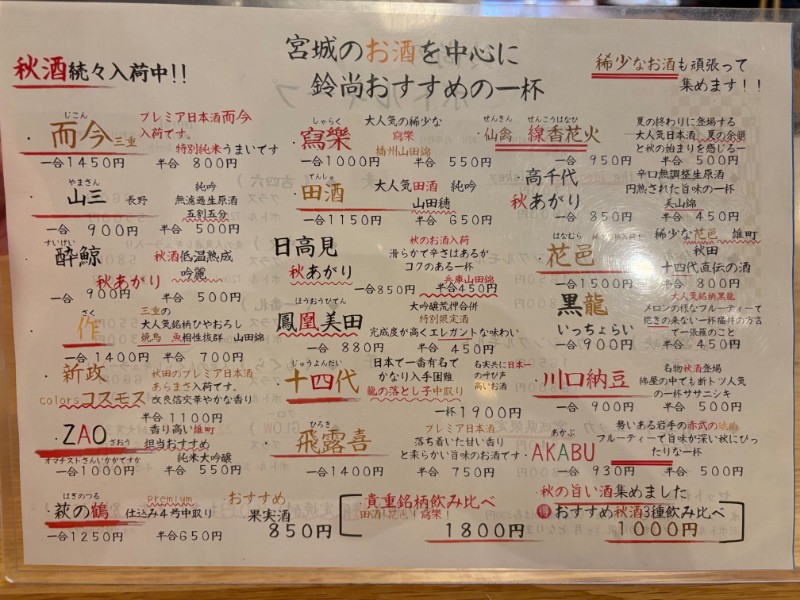 秋酒続々入荷中!!
宮城のお酒を中心に
鈴尚おすすめの一杯
稀少なお酒も頑張って
集めます!!
じこん
・而今三重
プレミア日本酒而今
入荷です。
特別純米うまいです
一合1450円 半合 800円
やまさん
・山三 長野
純吟
無濾過生原酒
五割五分
一合 900円 半合 500円
すいげい
・酔鯨
秋あがり
秋酒低温熟成
吟麗
一合 900円 半合 500円
ざく
・作
三重の
大人気銘柄ひやおろし
焼鳥 魚相性抜群 山田錦
一合 1400円 半合 700円
・新政
colorsコスモス
秋田のプレミア日本酒
あらまさ入荷です。
改良信交華やかな香り
半合 1100円
・ZAO ざおう
香り高い雄町
担当おすすめ
オマチストさんいかがですか 純米大吟醸
一合1000円 半合 550円
はぎのつる
・萩の鶴
premium
仕込み4号中取り
一合1250円 半合650円
しゃらく
・寫樂
大人気の稀少な
寫樂
播州山田錦
一合1000円 半合 550円
でんしゅ
・田酒
大人気田酒 純吟
山田穂
一合1150円 半合 650円
日高見
秋あがり
秋のお酒入荷
滑らかで辛さはあるか
コクのある一杯
兵庫山田錦
一合850円 半合450円
ほうおうびでん
・鳳凰美田
大吟醸荒押合併
特別限定酒
完成度が高くエレガントな味わい
一合 880円 半合 450円
じゅうよんだい
・十四代
日本で一番有名で
かなり入手困難
龍の落とし子中取り
名実共に日本一
の呼び声
高いお酒
一杯1900円
ひろき
・飛露喜
プレミア日本酒
落ち着いた甘い香り
と柔らかい旨味のお酒です
一合1400円 半合 750円
・おすすめ
果実酒
850円
貴重銘柄飲み比べ
田酒!花邑!寫樂!
1800円
せんきん せんこうはなび
・仙禽 線香花火
夏の終わりに登場する
大人気日本酒 夏の余韻
と秋の始まりを感じる一
一合 950円 半合 500円
・高千代
秋あがり
辛口無調整生原酒
円熟された旨味の一杯
美山錦
一合 850円 半合 450円
はなむら
・花邑
稀少な花邑 雄町
秋田
十四代直伝の酒
一合1500円 半合 800円
・黒龍
いっちょらい
大人気銘柄黒龍
メロンの様なフルーティーで
飽きの来ない一杯福井の方言
で一張羅のこと
一合900円 半合 450円
・川口納豆
名物秋酒登場
錦屋の中でも断トツ人気
の一杯ササニシキ
一合 900円 半合 500円
あかぶ
・AKABU
勢いある岩手の赤武の
フルーティーで旨味が深い秋にぴっ
たりな一杯
一合 930円 半合 500円
・秋の旨い酒集めました
得おすすめ秋酒3種飲み比べ
1000円